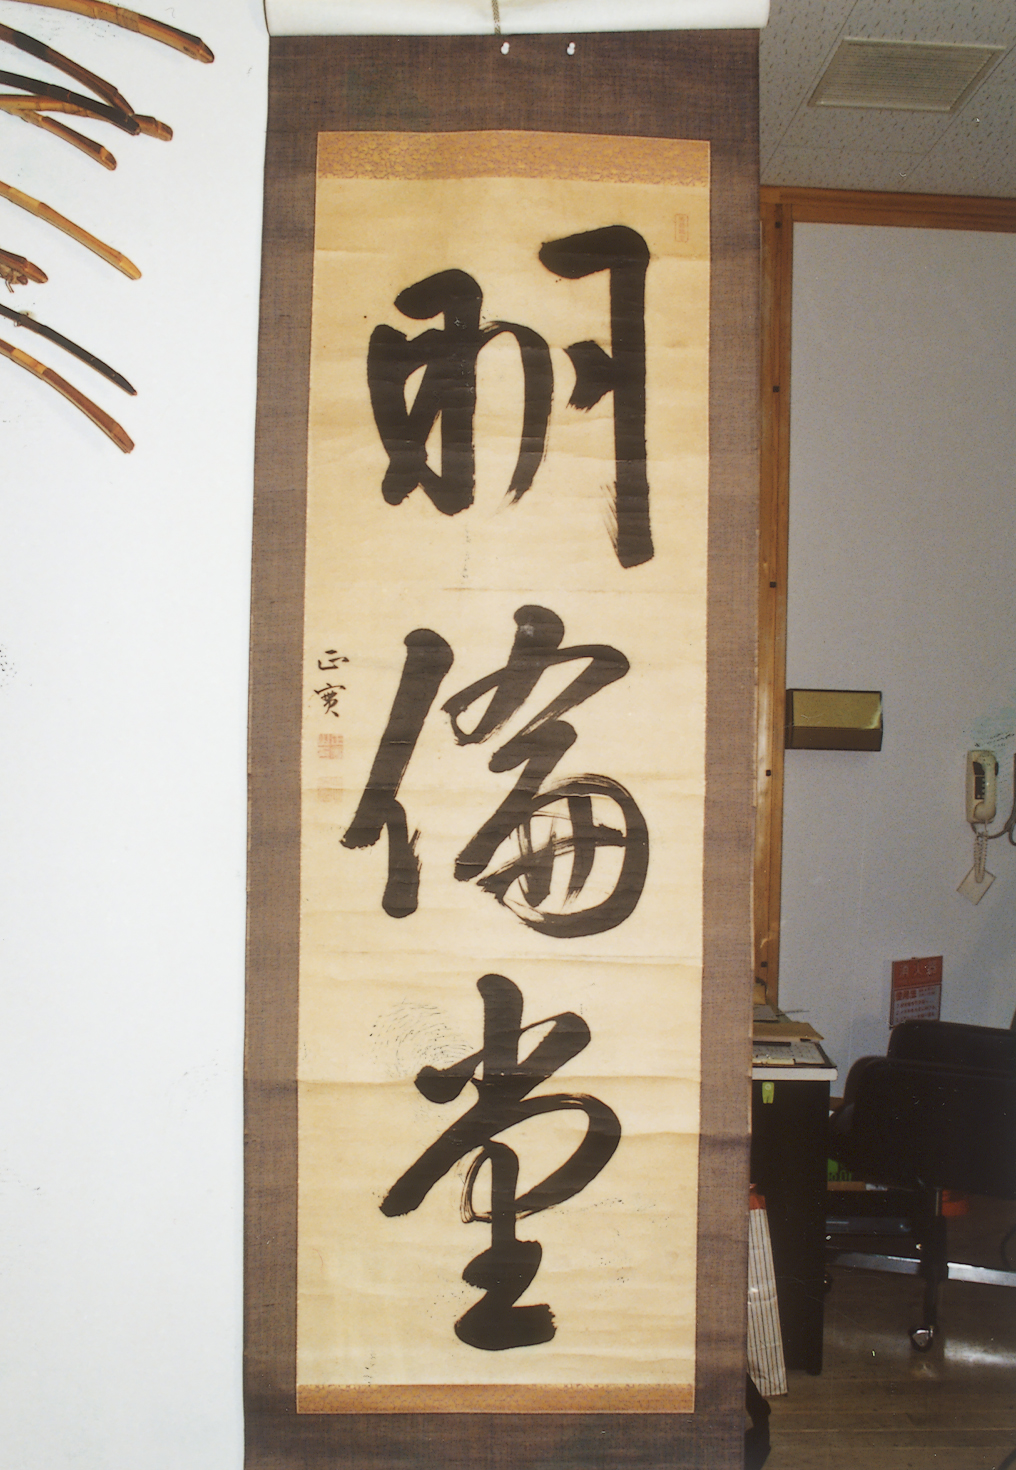 明倫堂
正實